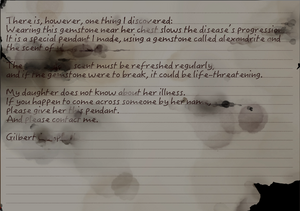 There is, however, one thing I discovered:
Wearing this gemstone near her chest slows the disease's progression.
It is a special pendant I made, using a gemstone called alexandrite and
the scent of
The scent must be refreshed regularly,
and if the gemstone were to break, it could be life-threatening.
My daughter does not know about her illness.
If you happen to come across someone by her name,
please give her this pendant.
And please contact me.
Gilbert